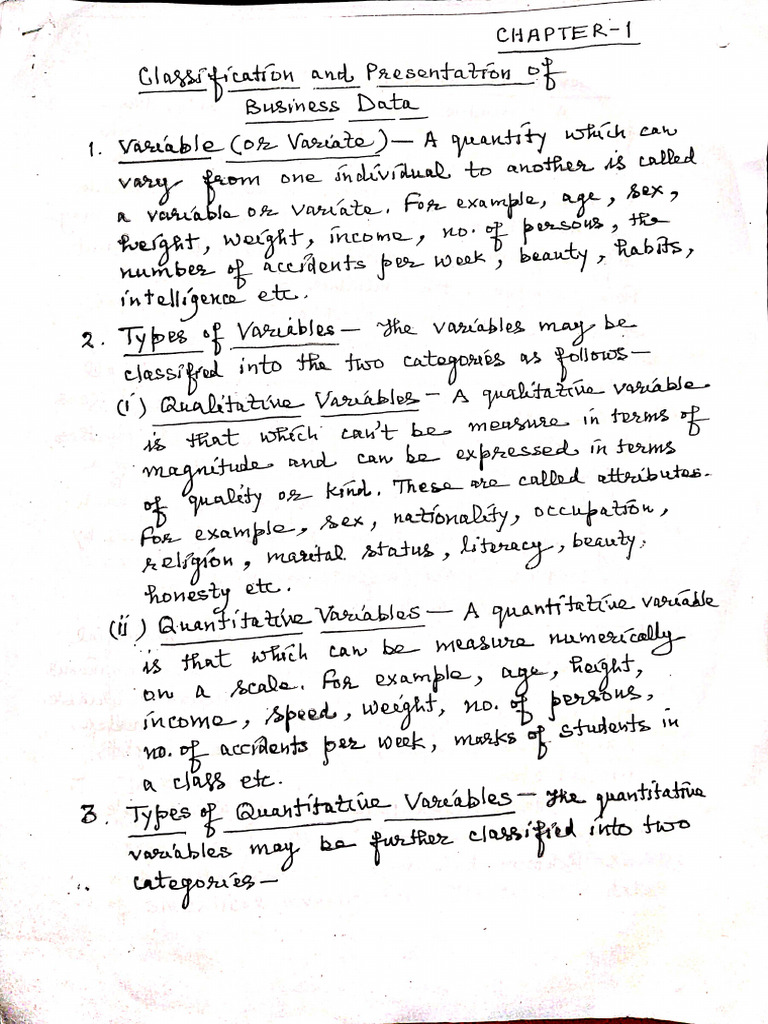 CHAPTER-1
Classification and Presentation of
Business Data
1. Variable (or Variate) — A quantity which can
vary from one individual to another is called
a variable or variate. For example, age, sex,
height, weight, income, no. of persons, the
number of accidents per week, beauty, habits,
intelligence etc.
2. Types of Variables — The variables may be
classified into the two categories as follows—
(i) Qualitative Variables — A qualitative variable
is that which can't be measure in terms of
magnitude and can be expressed in terms
of quality or kind. These are called attributes.
For example, sex, nationality, occupation,
religion, marital status, literacy, beauty,
honesty etc.
(ii) Quantitative Variables — A quantitative variable
is that which can be measure numerically
on a scale. For example, age, height,
income, speed, weight, no. of persons,
no. of accidents per week, marks of students in
a class etc.
3. Types of Quantitative Variables — The quantitative
variables may be further classified into two
categories —